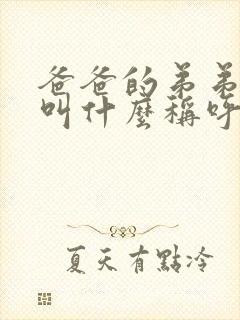 爸爸的弟弟
叫什麼稱呼
夏天有點冷